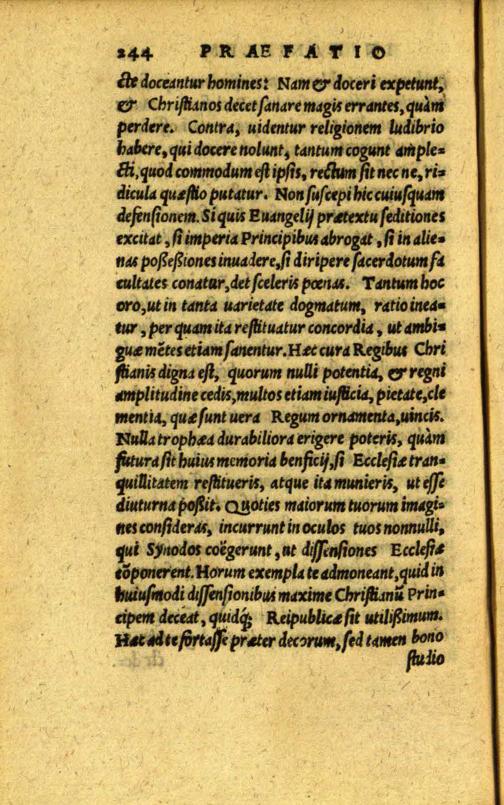 244 PRAEFATIO
cte doceantur homines: Nam & doceri expetunt,
& Christianos decet sanare magis errantes, quàm
perdere. Contra, uidentur religionem ludibrio
habere, qui docere nolunt, tantum cogunt ample=
cti, quod commodum est ipsis, rectum sit nec ne, ri=
dicula quæstio putatur. Non suscepi hic cuiusquam
defensionem. Si quis Euangelij prætextu seditiones
excitat, si imperia Principibus abrogat, si in alie=
nas possessiones inuadere, si diripere sacerdotum fa
cultates conatur, det sceleris pœnas. Tantum hoc
oro, ut in tanta uarietate dogmatum, ratio inea=
tur, per quam ita restituatur concordia, ut ambi=
guæ mẽtes etiam sanentur. Hæc cura Regibus Chri
stianis digna est, quorum nulli potentia, & regni
amplitudine cedis, multos etiam iusticia, pietate, cle
mentia, quæ sunt uera Regum ornamenta, uincis.
Nulla trophæa durabiliora erigere poteris, quàm
futura sit huius memoria benficij, si Ecclesiæ tran=
quillitatem restitueris, atque ita munieris, ut esse
diuturna possit. Quoties maiorum tuorum imagi=
nes consideras, incurrunt in oculos tuos nonnulli,
qui Synodos coëgerunt, ut dissensiones Ecclesiæ
cõponerent. Horum exempla te admoneant, quid in
huiusmodi dissensionibus maxime Christianũ Prin=
cipem deceat, quidq́; Reipublicæ sit utilissimum.
Hæc ad te fortasse præter decorum, sed tamen bono
studio